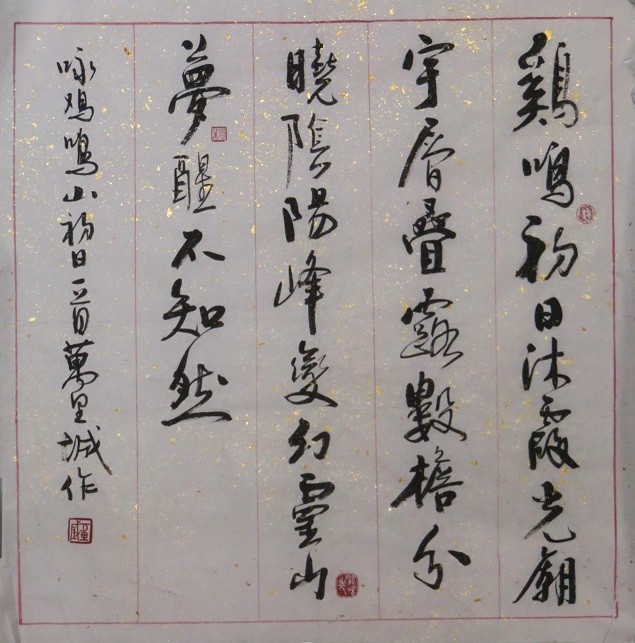 鷄鳴初日沐霞光廟
宇層疊露數檐分
曉陰陽峰變幻靈山
夢醒不知然
咏鸡鳴山初日一首萬里城作